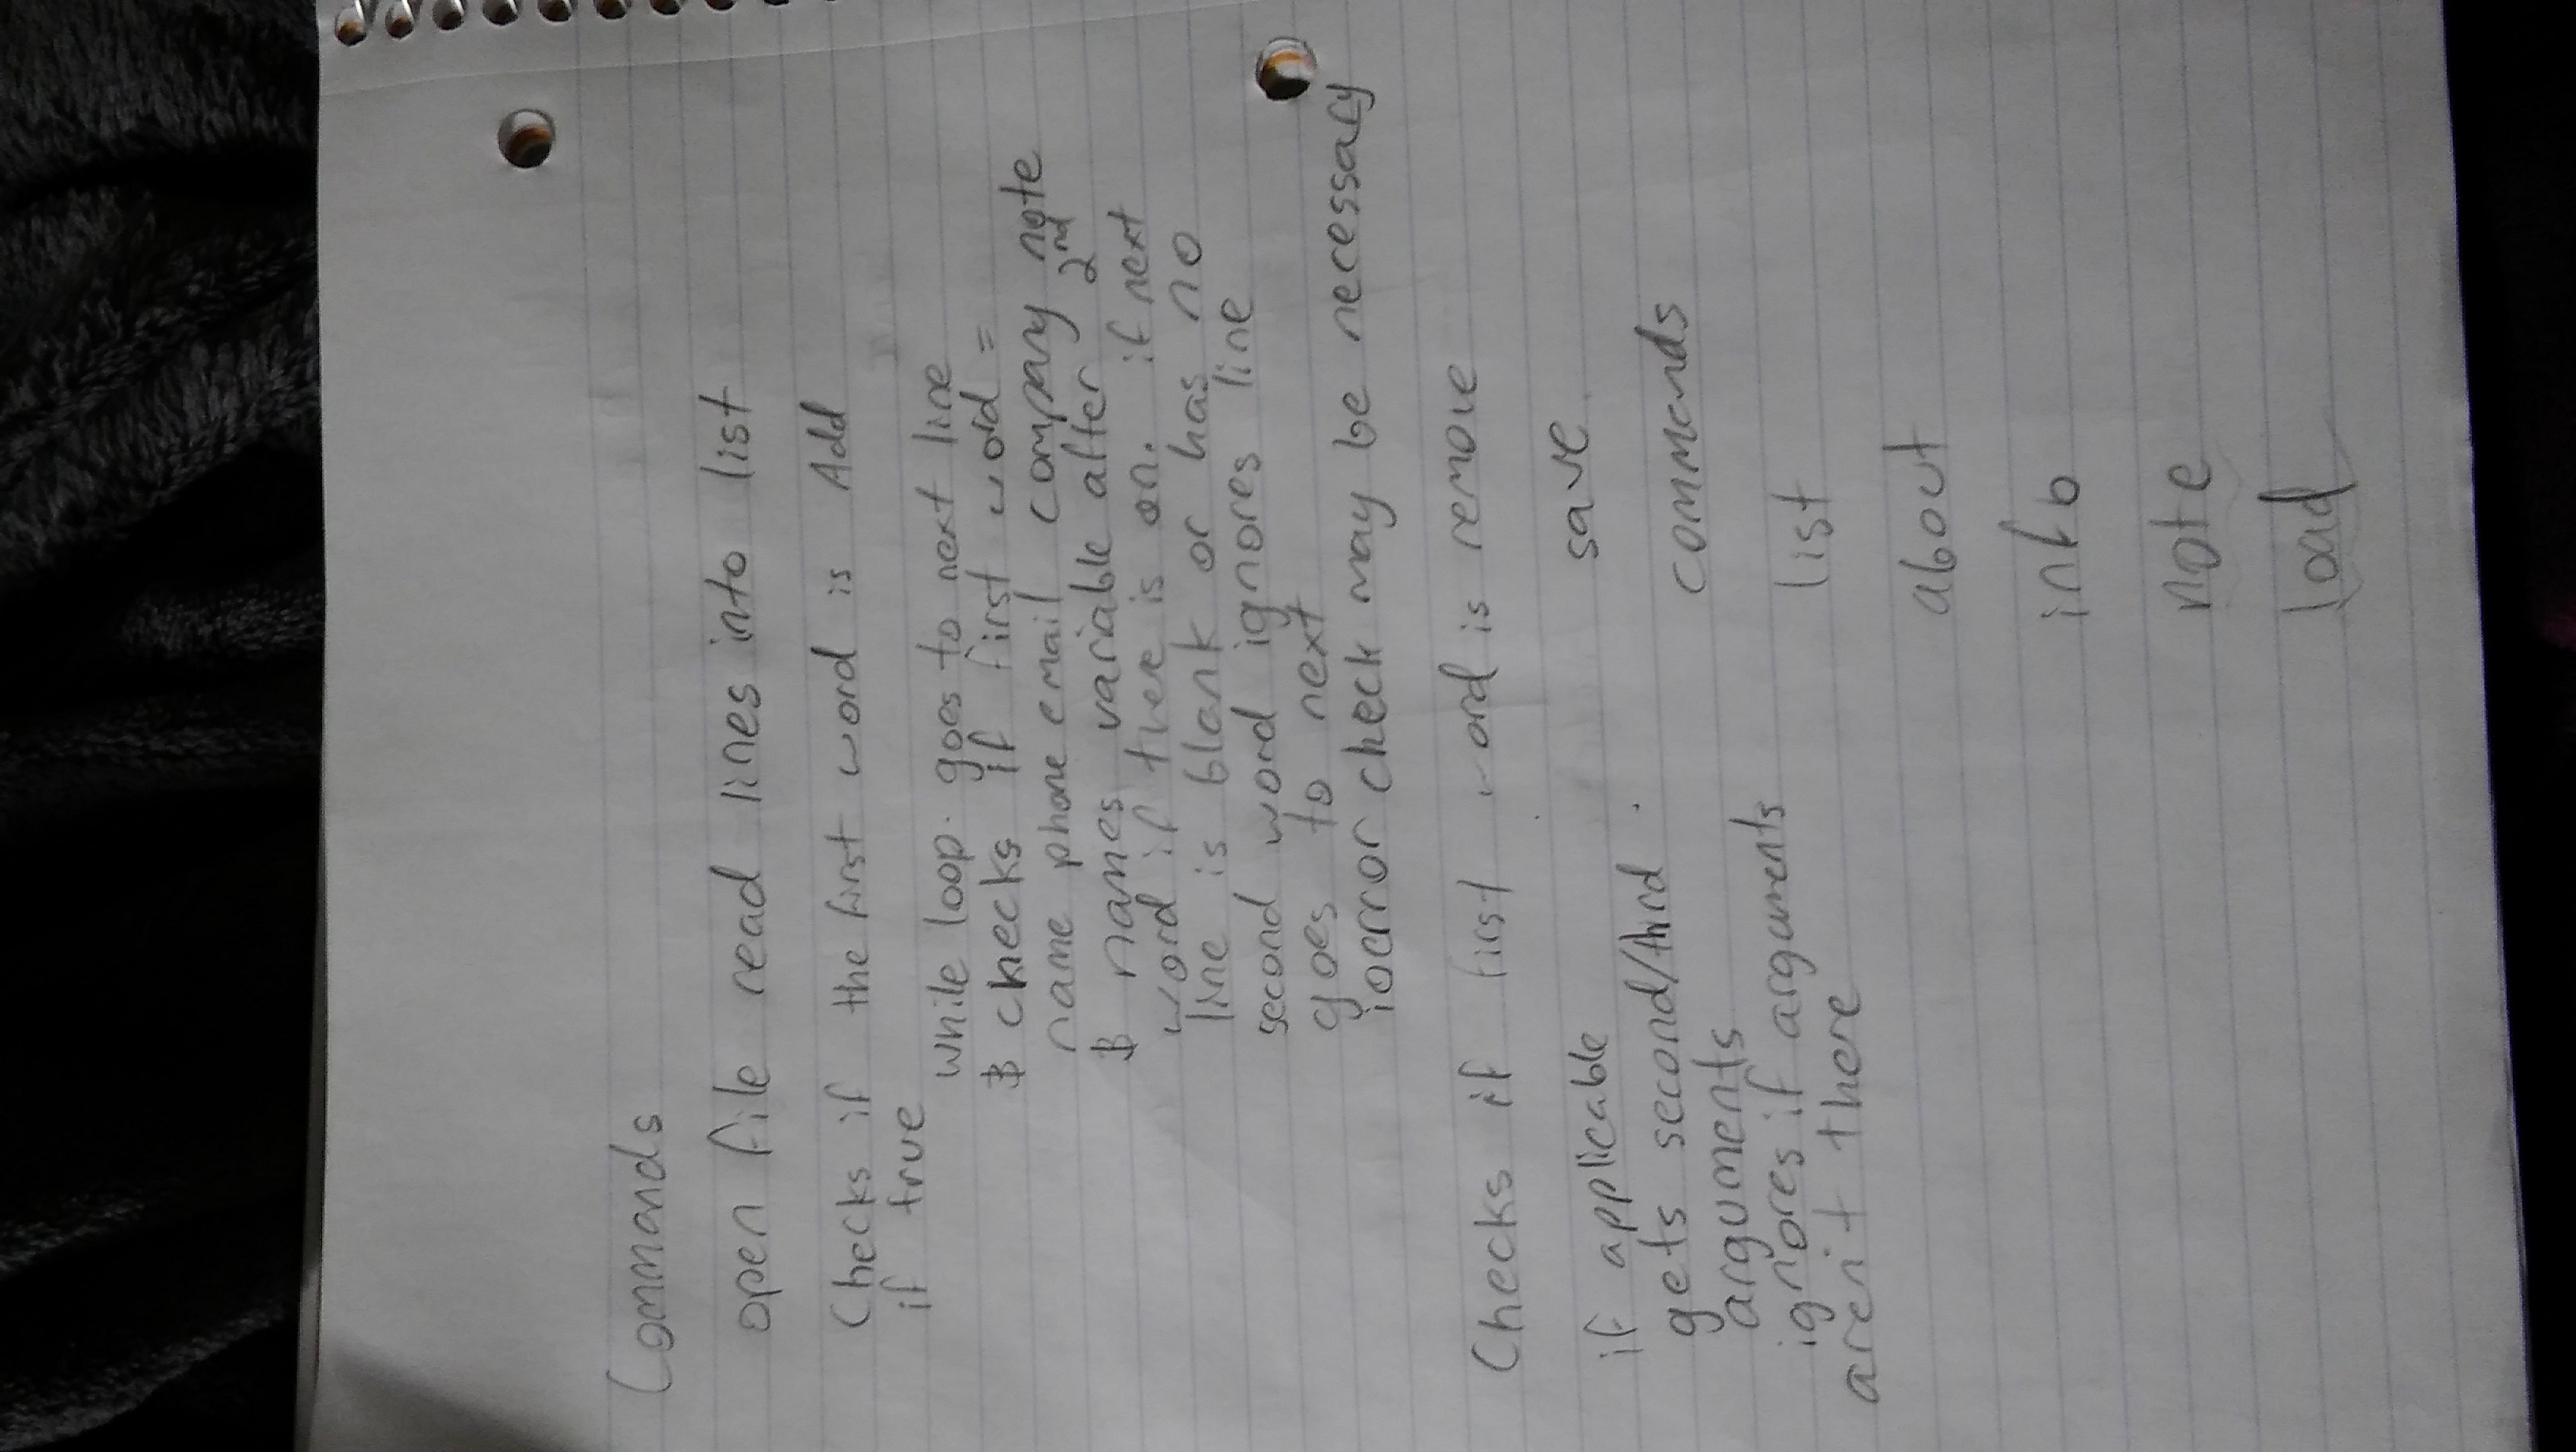 Commands
open file read lines into list
Checks if the first word is Add
if true
while loop. goes to next line
& checks if first word =
name phone email company note
& names variable after 2nd
word if there is on. if next
line is blank or has no
second word ignores line
goes to next
ioerror check may be necessary
Checks if first word is remove
save
commands
list
about
info
note
load
if applicable
gets second/third
arguments
ignores if arguments
aren't there